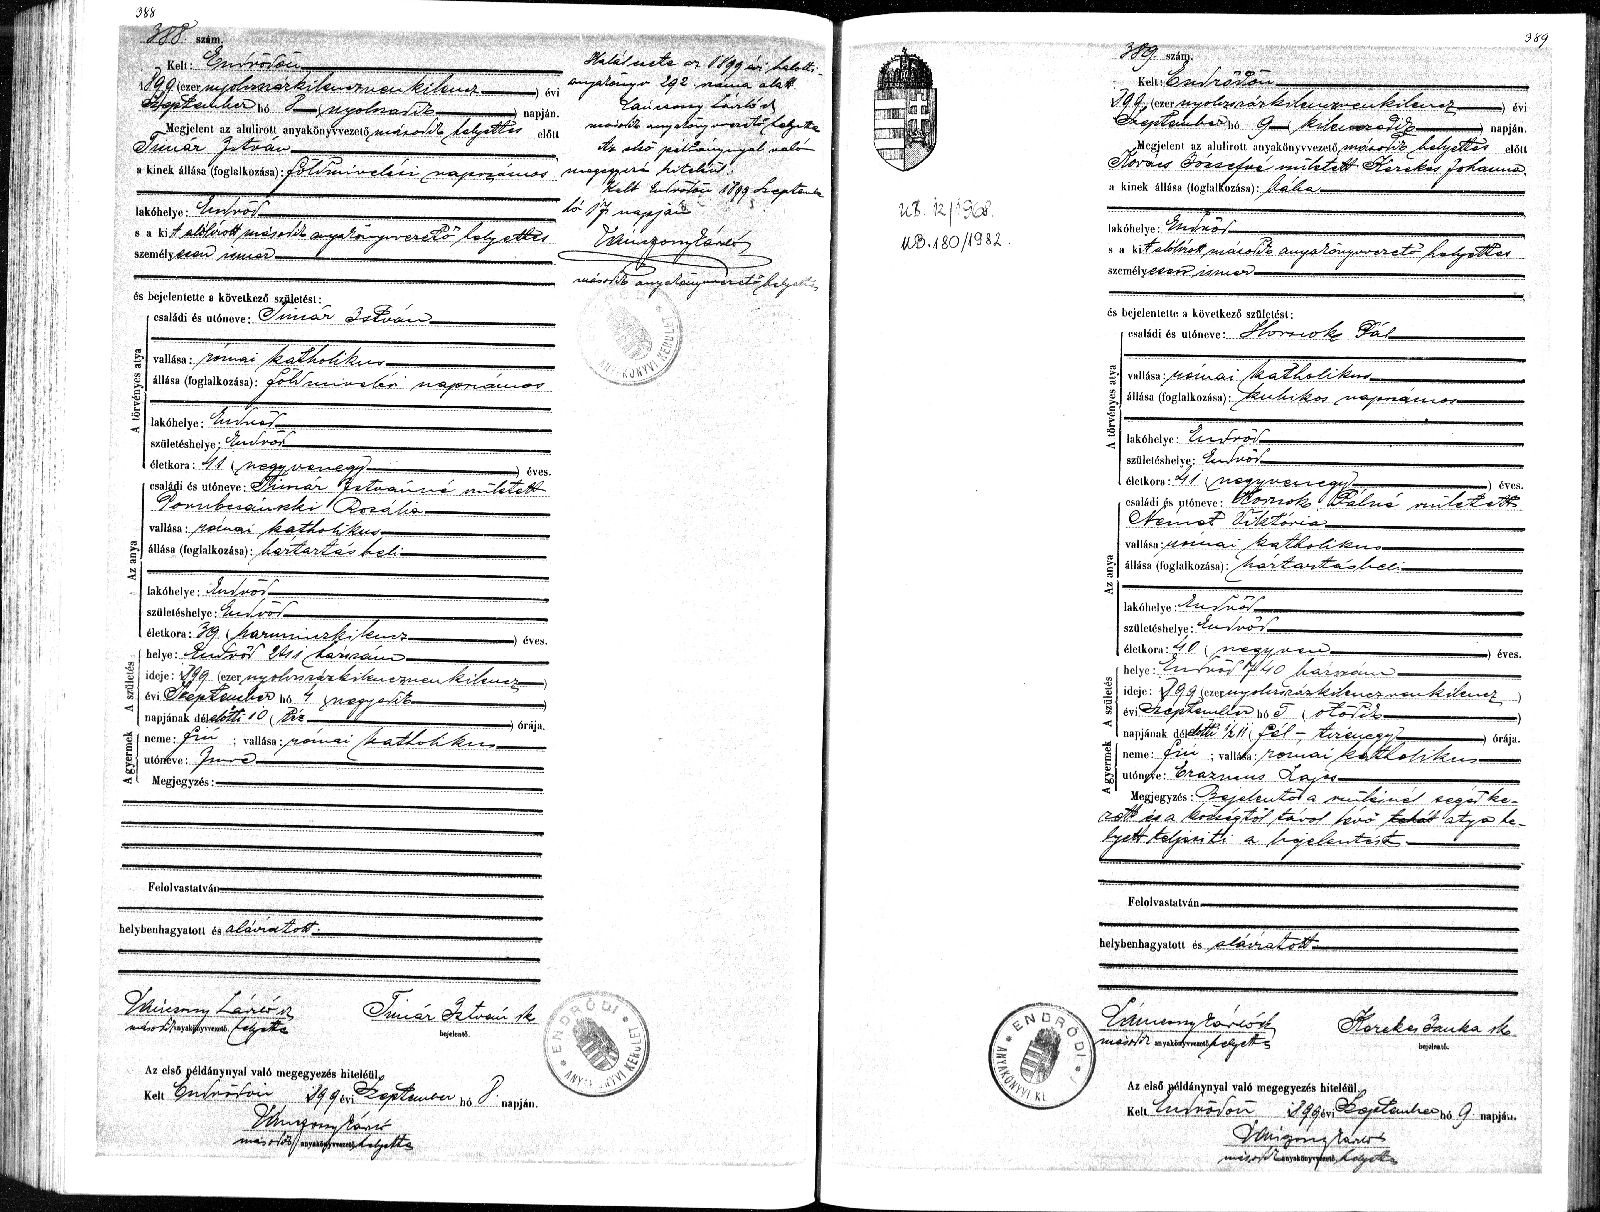 388
388. szám.
Kelt: Endrődön
1899 (ezer nyolczszázkilenczvenkilencz) évi
Szeptember hó 8 (nyolczadik) napján.
Megjelent az alulirott anyakönyvvezető, második helyettes előtt
Timár István
a kinek állása (foglalkozása): földmivelési napszámos
lakóhelye: Endrőd
s a kit alólirott második anyakönyvvezető helyettes
személyesen ismer
és bejelentette a következő születést:
A törvényes atya
családi és utóneve: Timár István
vallása: római katholikus
állása (foglalkozása): földmivelési napszámos
lakóhelye: Endrőd
születéshelye: Endrőd
életkora: 41 (negyvenegy) éves.
Az anya
családi és utóneve: Timár Istvánné született
Rozália
vallása: római katholikus
állása (foglalkozása): háztartásbeli
lakóhelye: Endrőd
születéshelye: Endrőd
életkora: 39 (harminczkilencz) éves.
A születés
helye: Endrőd házszám
ideje: 1899 (ezer nyolczszázkilenczvenkilencz)
évi Szeptember hó 4 (negyedik)
napjának délelőtti 10 (tiz) órája.
A gyermek
neme: fiú ; vallása: római katholikus
utóneve: Imre
Megjegyzés:
Felolvastatván
helybenhagyatott és aláiratott.
második anyakönyvvezető helyettes
Timár István sk
bejelentő.
Az első példánynyal való megegyezés hiteléül.
Kelt Endrődön 1899 évi Szeptember hó 8. napján.
második anyakönyvvezető helyettes
Halálesete az 1899 évi halotti
anyakönyv 292 száma alatt
második anyakönyvvezető helyettes
Az első példánynyal való
megegyezés hiteléül.
Kelt Endrődön 1899 Szeptember
hó 17 napján
második anyakönyvvezető helyettes
ENDRŐDI
ANYAKÖNYVI KERÜLET
ENDRŐDI
ANYAKÖNYVI KERÜLET
UB. 12/1968.
UB. 180/1982.
389
389. szám.
Kelt: Endrődön
1899 (ezer nyolczszázkilenczvenkilencz) évi
Szeptember hó 9 (kilenczedik) napján.
Megjelent az alulirott anyakönyvvezető, második helyettes előtt
Kovács Józsefné született Kerekes Johanna
a kinek állása (foglalkozása): bába
lakóhelye: Endrőd
s a kit alólirott második anyakönyvvezető helyettes
személyesen ismer
és bejelentette a következő születést:
A törvényes atya
családi és utóneve: Hornok Pál
vallása: római katholikus
állása (foglalkozása): kubikos napszámos
lakóhelye: Endrőd
születéshelye: Endrőd
életkora: 41 (negyvenegy) éves.
Az anya
családi és utóneve: Hornok Pálné született
Német Viktória
vallása: római katholikus
állása (foglalkozása): háztartásbeli
lakóhelye: Endrőd
születéshelye: Endrőd
életkora: 40 (negyven) éves.
A születés
helye: Endrőd 1740 házszám
ideje: 1899 (ezer nyolczszázkilenczvenkilencz)
évi Szeptember hó 5 (ötödik)
napjának délelőtti 1/2 11 (fél-tizenegy) órája.
A gyermek
neme: fiú ; vallása: római katholikus
utóneve: Erazmus Lajos
Megjegyzés: Bejelentő a szülésnél segédke-
zett és a községtől távol lévő tehát atya he-
lyett teljesiti a bejelentést
Felolvastatván
helybenhagyatott és aláiratott
második anyakönyvvezető helyettes
Kerekes Janka sk
bejelentő.
Az első példánynyal való megegyezés hiteléül.
Kelt Endrődön 1899 évi Szeptember hó 9 napján.
második anyakönyvvezető helyettes
ENDRŐDI
ANYAKÖNYVI KE